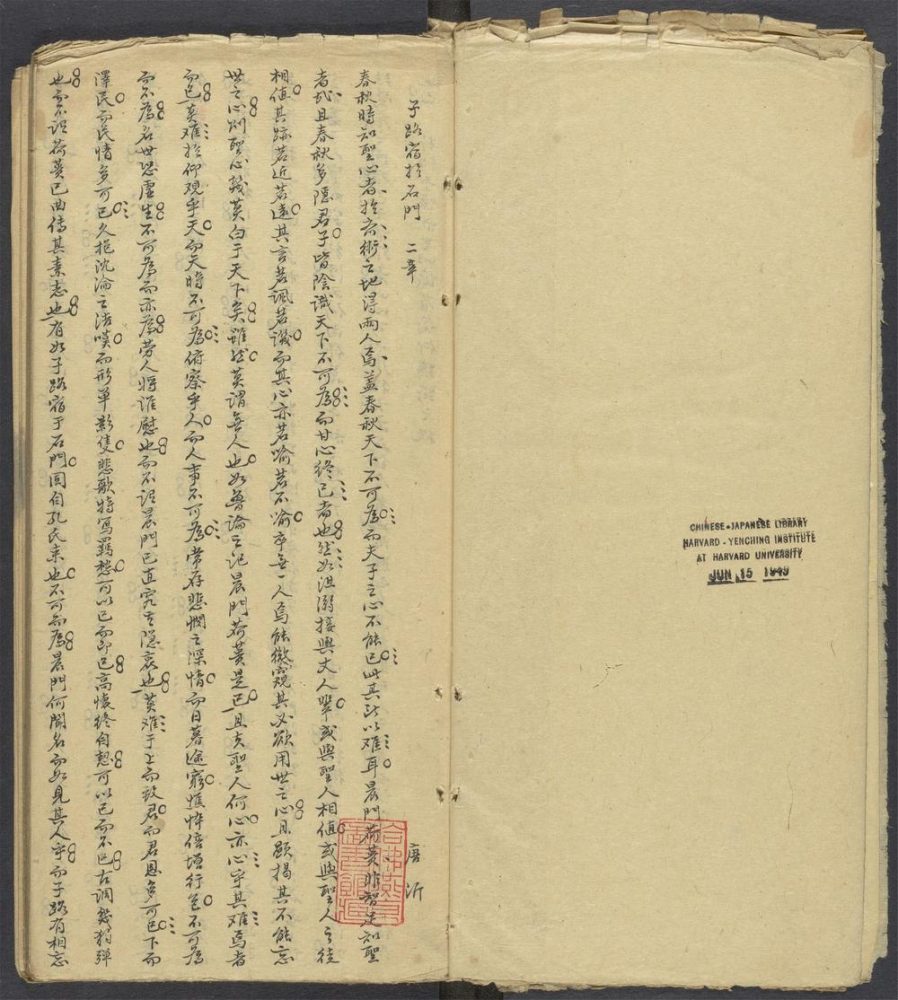 子路宿於石門 二章
唐沂
春秋時知聖心者於旁術之地得兩人焉蓋春秋天下不可為而夫子之心不能已此其所以难耳晨門荷蕢非智足知聖
者哉且春秋多隱君子皆陰識天下不可為而甘心終已者也然如沮溺接輿丈人輩或與聖人相值或與聖人之徒
相值其跡若近若遠其言若諷若譏而其心亦若喻若不喻卒無一人焉能微窺其必欲用世之心且顯揭其不能忘
世之心則聖心幾莫白于天下矣雖然莫謂無人也如魯論之記晨門荷蕢是已且夫聖人何心亦心乎其难焉者
而已莫难於仰觀乎天而天時不可為俯察乎人而人事不可為常存悲憫之深情而日暮途窮憔悴倍增行色不可為
而不為名世恐虛生不可為而亦為勞人將誰慰也而不謂晨門已直究其隱衷也莫难于上而致君而君恩多可已下而
澤民而民情多可已久抱沈淪之浩嘆而形單影隻悲歌特寫羈愁可以已而即已高懷終自恝可以已而不已古調愁獨彈
也而不謂荷蕢已曲傳其素志也有如子路宿于石門固自孔氏來也不可而為晨門何聞名而如見其人乎而子路有相忘
CHINESE-JAPANESE LIBRARY
HARVARD-YENCHING INSTITUTE
AT HARVARD UNIVERSITY
JUN 15 1949